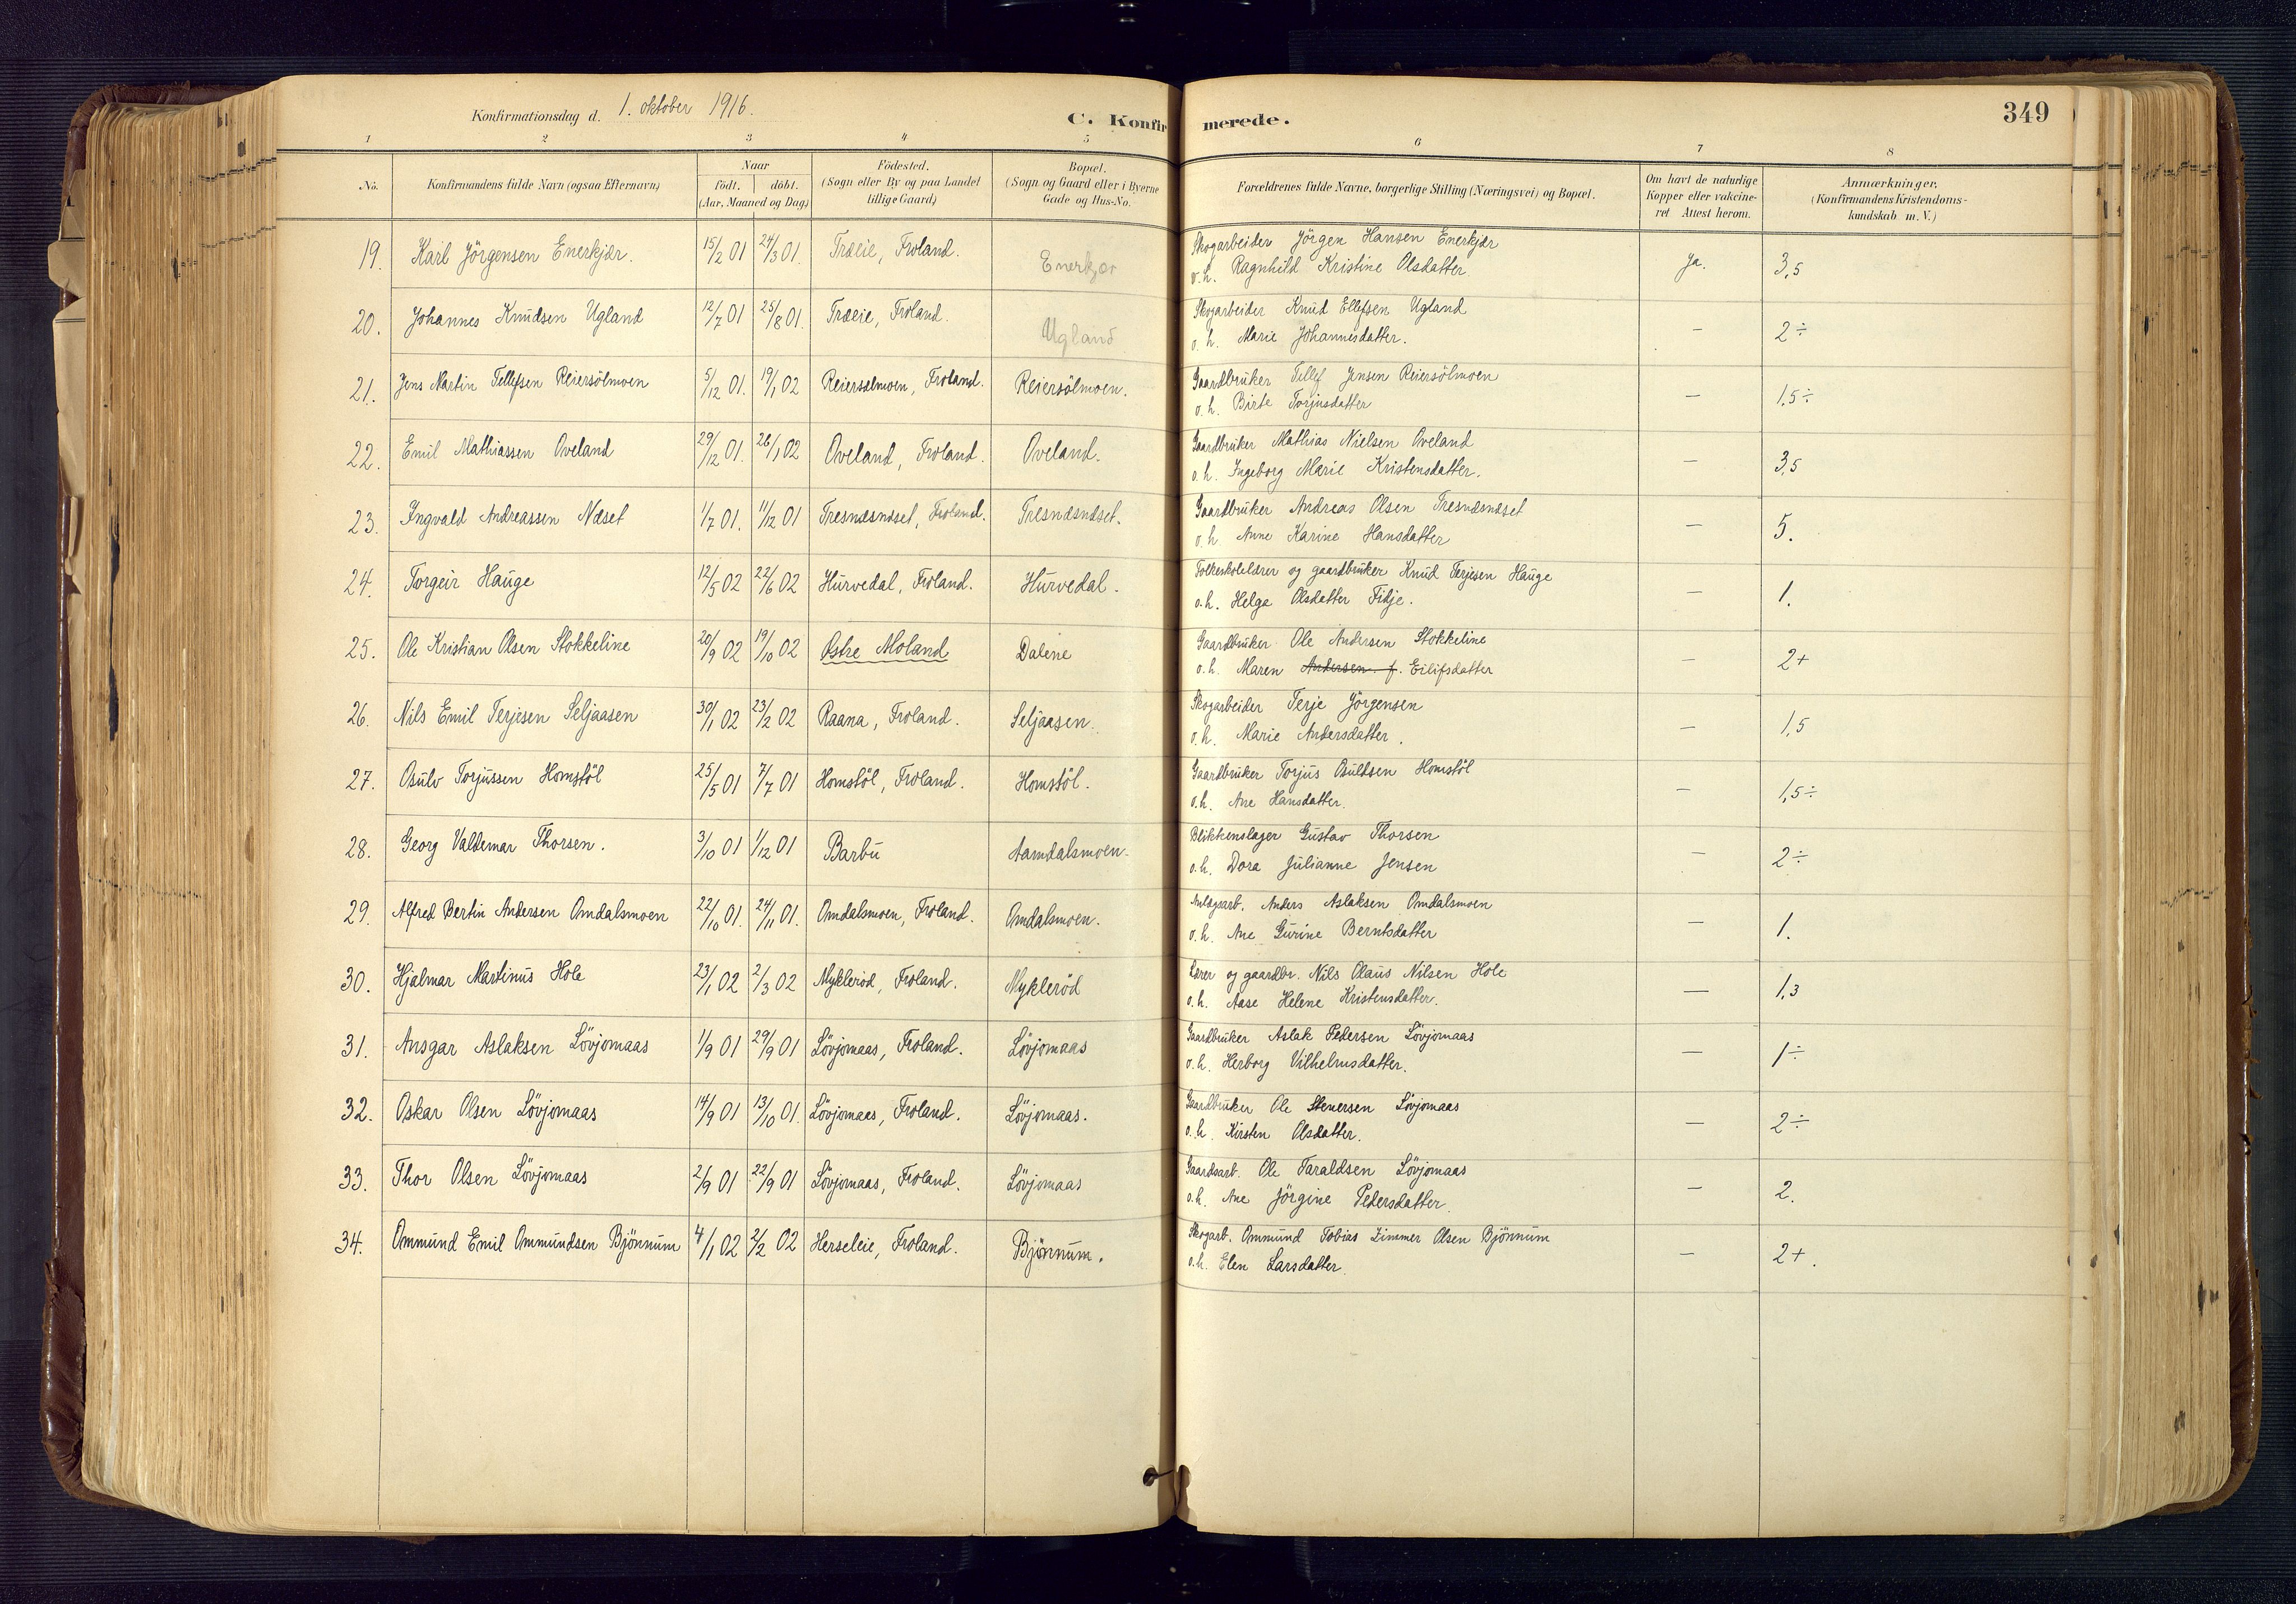 Konfirmationsdag d. 1. oktober 1916.
C. Konfirmerede.
349
1 2 3 4 5 6 7 8
No.
Konfirmandens fulde Navn (ogsaa Efternavn)
Naar
födt. | döbt.
(Aar, Maaned og Dag)
Födested.
(Sogn eller By og paa Landet
tillige Gaard)
Bopæl.
(Sogn og Gaard eller i Byerne
Gade og Hus-No.
Forældrenes fulde Navne, borgerlige Stilling (Næringsvei) og Bopæl.
Om havt de naturlige
Kopper eller vakcine-
ret Attest herom.
Anmærkninger.
(Konfirmandens Kristendoms-
kundskab m. V.)
19. Karl Jörgensen Enerkjær. 15/2 01 24/3 01. Træeie, Froland. Enerkjær Skogarbeider Jörgen Hansen Enerkjær
o. h. Ragnhild Kristine Olsdatter. Ja. 3,5
20. Johannes Knudsen Ugland 12/7 01 25/8 01. Træeie, Froland. Ugland Skogarbeider Knud Ellefsen Ugland
o. h. Marie Johannesdatter. — 2÷
21. Jens Martin Tellefsen Reiersölmoen 5/12 01. 19/1 02 Reiersølmoen, Froland. Reiersölmoen. Gaardbruker Tellef Jensen Reiersölmoen
o. h. Birte Torjusdatter — 1,5÷
22. Emil Mathiassen Oveland 29/12 01. 26/1 02 Oveland, Froland. Oveland. Gaardbruker Mathias Nielsen Oveland
o. h. Ingeborg Marie Kristensdatter. — 3,5
23. Ingvald Andreassen Næset 1/7 01. 11/12 01 Tresnæsnæset, Froland. Tresnæsnæset. Gaardbruker Andreas Olsen Tresnæsnæset
o. h. Anne Karine Hansdatter — 5.
24. Torgeir Hauge 12/5 02 22/6 02 Hurvedal, Froland. Hurvedal. Folkeskolelærer og gaardbruker Knud Terjesen Hauge
o. h. Helga Olsdatter Fidje. — 1.
25. Ole Kristian Olsen Stokkeline 20/9 02 19/10 02 Østre Moland Dalene Gaardbruker Ole Andersen Stokkeline
o. h. Maren Andersen f. Eilifsdatter — 2+
26. Nils Emil Terjesen Seljaasen 30/1 02 23/2 02 Raana, Froland. Seljaasen. Skogarbeider Terje Jörgensen
o. h. Marie Andersdatter. — 1,5
27. Osulv Torjussen Homstöl 25/5 01 7/7 01 Homstöl, Froland. Homstöl. Gaardbruker Torjus Osuldsen Homstöl
o. h. Ane Hansdatter. — 1,5÷
28. Georg Valdemar Thorsen. 3/10 01 1/12 01 Barbu Aamdalsmoen. Blikkenslager Gustav Thorsen
o. h. Dora Julianne Jensen — 2÷
29. Alfred Bertin Andersen Omdalsmoen 22/10 01. 24/11 01. Omdalsmoen, Froland. Omdalsmoen. Anlægsarb. Anders Aslaksen Omdalsmoen
o. h. Ane Gurine Berntsdatter — 1.
30. Hjalmar Martinus Hole 23/1 02 2/3 02 Mykleröd, Froland. Mykleröd Lærer og gaardbr. Nils Olaus Nilsen Hole
o. h. Aase Helene Kristensdatter. — 1,3
31. Ansgar Aslaksen Lövjomaas 1/9 01 29/9 01 Lövjomaas, Froland. Lövjomaas Gaardbruker Aslak Pedersen Lövjomaas
o. h. Herborg Vilhelmsdatter. — 1÷
32. Oskar Olsen Lövjomaas 14/9 01 13/10 01. Lövjomaas, Froland. Lövjomaas. Gaardbruker Ole Stenersen Lövjomaas
o. h. Kirsten Olsdatter. — 2÷
33. Thor Olsen Lövjomaas 2/9 01 22/9 01 Lövjomaas, Froland. Lövjomaas Gaardsarb. Ole Taraldsen Lövjomaas
o. h. Ane Jörgine Pedersdatter. — 2.
34. Ommund Emil Ommundsen Bjönnum 4/1 02 2/2 02 Herseleie, Froland. Bjönnum. Skogarb. Ommund Tobias Zimmer Olsen Bjönnum
o. h. Elen Larsdatter. — 2+.